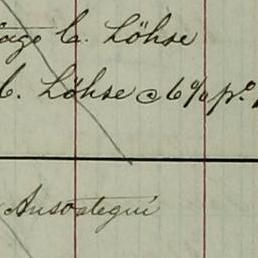 iago C. Löhse
C. Löhse c/6 % pº
Ansoategui